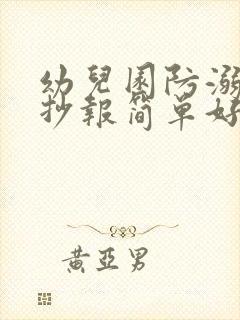 幼兒園防溺
抄報簡單好
黃亞男